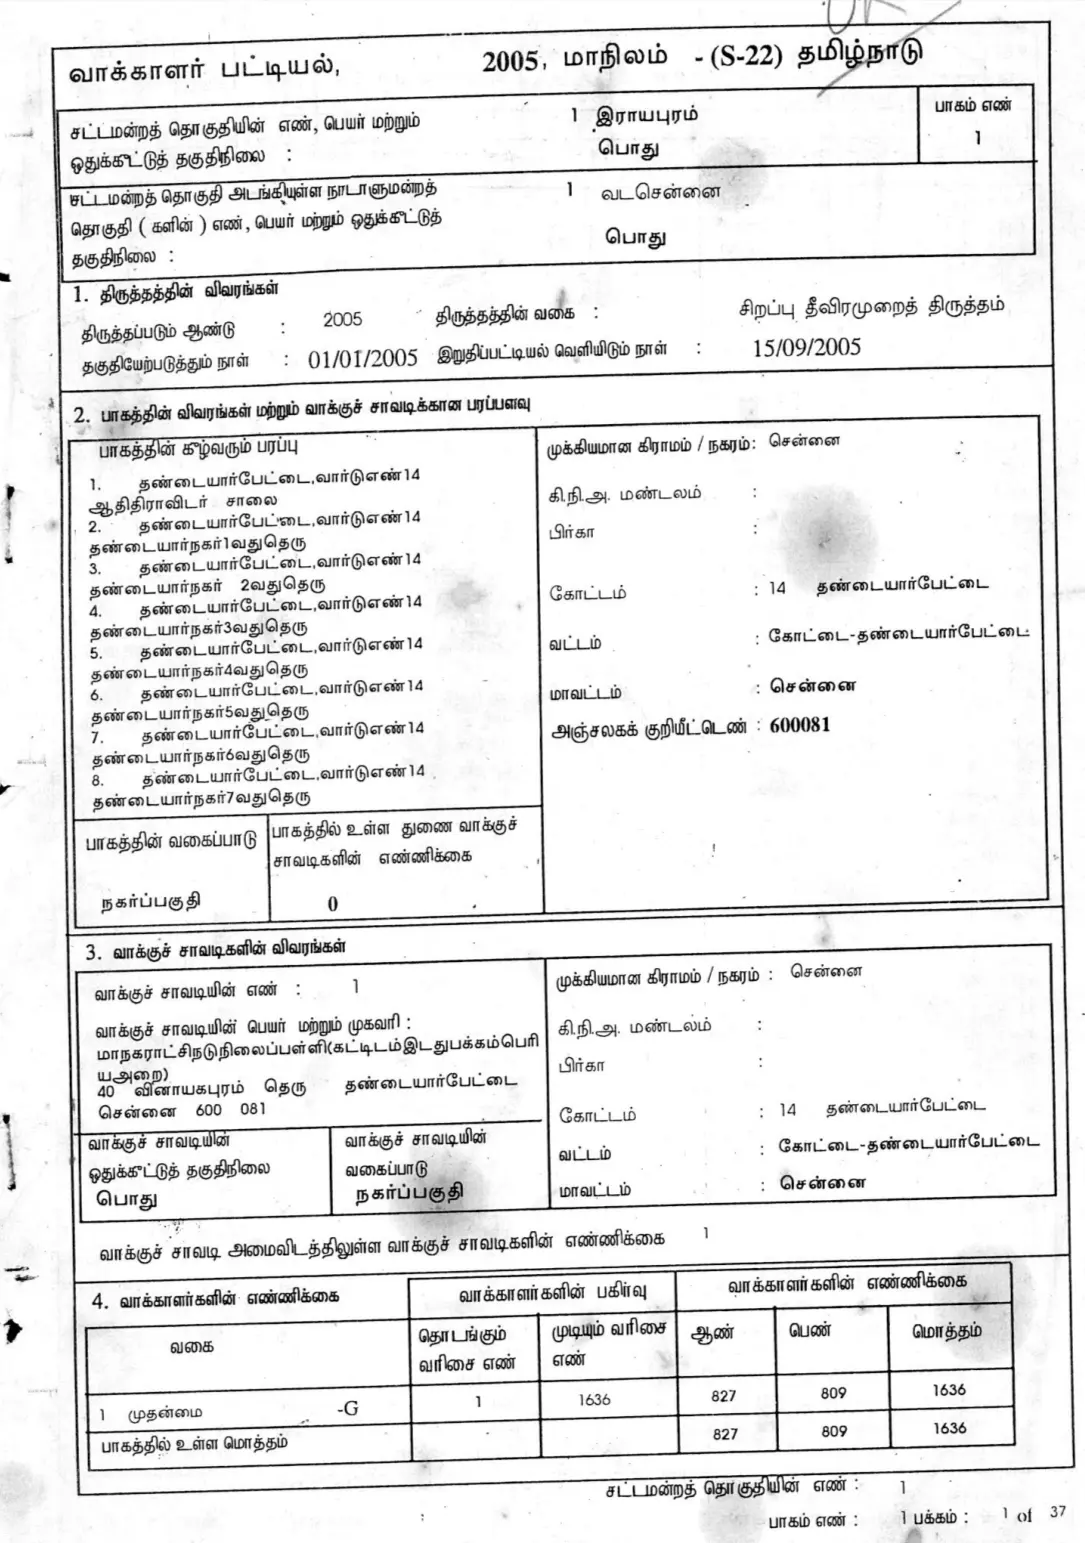 வாக்காளர் பட்டியல், 2005, மாநிலம் - (S-22) தமிழ்நாடு
சட்டமன்றத் தொகுதியின் எண், பெயர் மற்றும் 1 இராயபுரம் பாகம் எண்
ஒதுக்கீட்டுத் தகுதிநிலை : பொது 1
சட்டமன்றத் தொகுதி அடங்கியுள்ள நாடாளுமன்றத் 1 வடசென்னை
தொகுதி ( களின் ) எண், பெயர் மற்றும் ஒதுக்கீட்டுத் பொது
தகுதிநிலை :
1. திருத்தத்தின் விவரங்கள்
திருத்தப்படும் ஆண்டு : 2005 திருத்தத்தின் வகை : சிறப்பு தீவிரமுறைத் திருத்தம்
தகுதியேற்படுத்தும் நாள் : 01/01/2005 இறுதிப்பட்டியல் வெளியிடும் நாள் : 15/09/2005
2. பாகத்தின் விவரங்கள் மற்றும் வாக்குச் சாவடிக்கான பரப்பளவு
பாகத்தின் கீழ்வரும் பரப்பு
1. தண்டையார்பேட்டை,வார்டுஎண்14
ஆதிதிராவிடர் சாலை
2. தண்டையார்பேட்டை,வார்டுஎண்14
தண்டையார்நகர்1வதுதெரு
3. தண்டையார்பேட்டை,வார்டுஎண்14
தண்டையார்நகர் 2வதுதெரு
4. தண்டையார்பேட்டை,வார்டுஎண்14
தண்டையார்நகர்3வதுதெரு
5. தண்டையார்பேட்டை,வார்டுஎண்14
தண்டையார்நகர்4வதுதெரு
6. தண்டையார்பேட்டை,வார்டுஎண்14
தண்டையார்நகர்5வதுதெரு
7. தண்டையார்பேட்டை,வார்டுஎண்14
தண்டையார்நகர்6வதுதெரு
8. தண்டையார்பேட்டை,வார்டுஎண்14
தண்டையார்நகர்7வதுதெரு
முக்கியமான கிராமம் / நகரம் : சென்னை
கி.நி.அ. மண்டலம் :
பிர்கா :
கோட்டம் : 14 தண்டையார்பேட்டை
வட்டம் : கோட்டை-தண்டையார்பேட்டை
மாவட்டம் : சென்னை
அஞ்சலகக் குறியீட்டெண் : 600081
பாகத்தின் வகைப்பாடு
நகர்ப்பகுதி
பாகத்தில் உள்ள துணை வாக்குச்
சாவடிகளின் எண்ணிக்கை
0
3. வாக்குச் சாவடிகளின் விவரங்கள்
வாக்குச் சாவடியின் எண் : 1
வாக்குச் சாவடியின் பெயர் மற்றும் முகவரி :
மாநகராட்சிநடுநிலைப்பள்ளி(கட்டிடம்இடதுபக்கம்பெரி
யஅறை)
40 வினாயகபுரம் தெரு தண்டையார்பேட்டை
சென்னை 600 081
முக்கியமான கிராமம் / நகரம் : சென்னை
கி.நி.அ. மண்டலம் :
பிர்கா :
கோட்டம் : 14 தண்டையார்பேட்டை
வட்டம் : கோட்டை-தண்டையார்பேட்டை
மாவட்டம் : சென்னை
வாக்குச் சாவடியின்
ஒதுக்கீட்டுத் தகுதிநிலை
பொது
வாக்குச் சாவடியின்
வகைப்பாடு
நகர்ப்பகுதி
வாக்குச் சாவடி அமைவிடத்திலுள்ள வாக்குச் சாவடிகளின் எண்ணிக்கை 1
4. வாக்காளர்களின் எண்ணிக்கை வாக்காளர்களின் பகிர்வு வாக்காளர்களின் எண்ணிக்கை
வகை தொடங்கும் முடியும் வரிசை ஆண் பெண் மொத்தம்
வரிசை எண் எண்
1 முதன்மை -G 1 1636 827 809 1636
பாகத்தில் உள்ள மொத்தம் 827 809 1636
சட்டமன்றத் தொகுதியின் எண் : 1
பாகம் எண் : 1 பக்கம் : 1 of 37